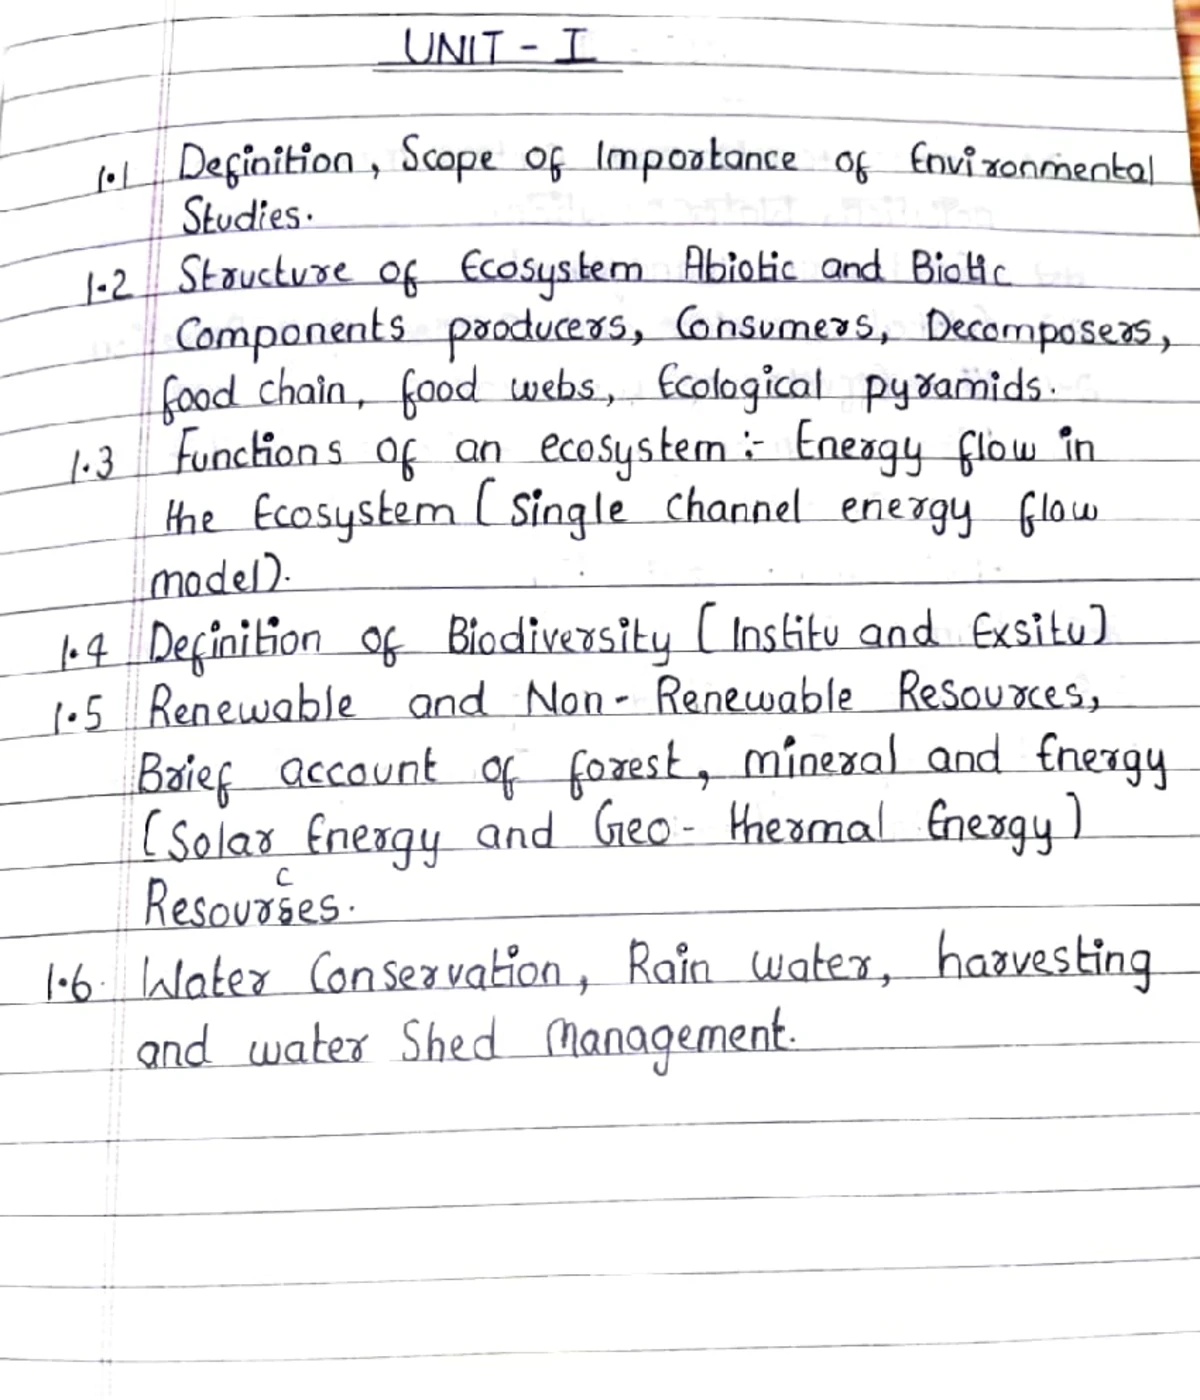 UNIT - I
1.1 Definition, Scope of Importance of Environmental
Studies.
1.2 Structure of Ecosystem Abiotic and Biotic
Components producers, Consumers, Decomposers,
food chain, food webs, Ecological pyramids.
1.3 Functions of an ecosystem :- Energy flow in
the Ecosystem [Single channel energy flow
model].
1.4 Definition of Biodiversity [Institu and Exsitu]
1.5 Renewable and Non-Renewable Resources,
Brief account of forest, mineral and Energy
[Solar Energy and Geo-thermal Energy]
c
Resourses.
1.6. Water Conservation, Rain water, harvesting
and water Shed Management.